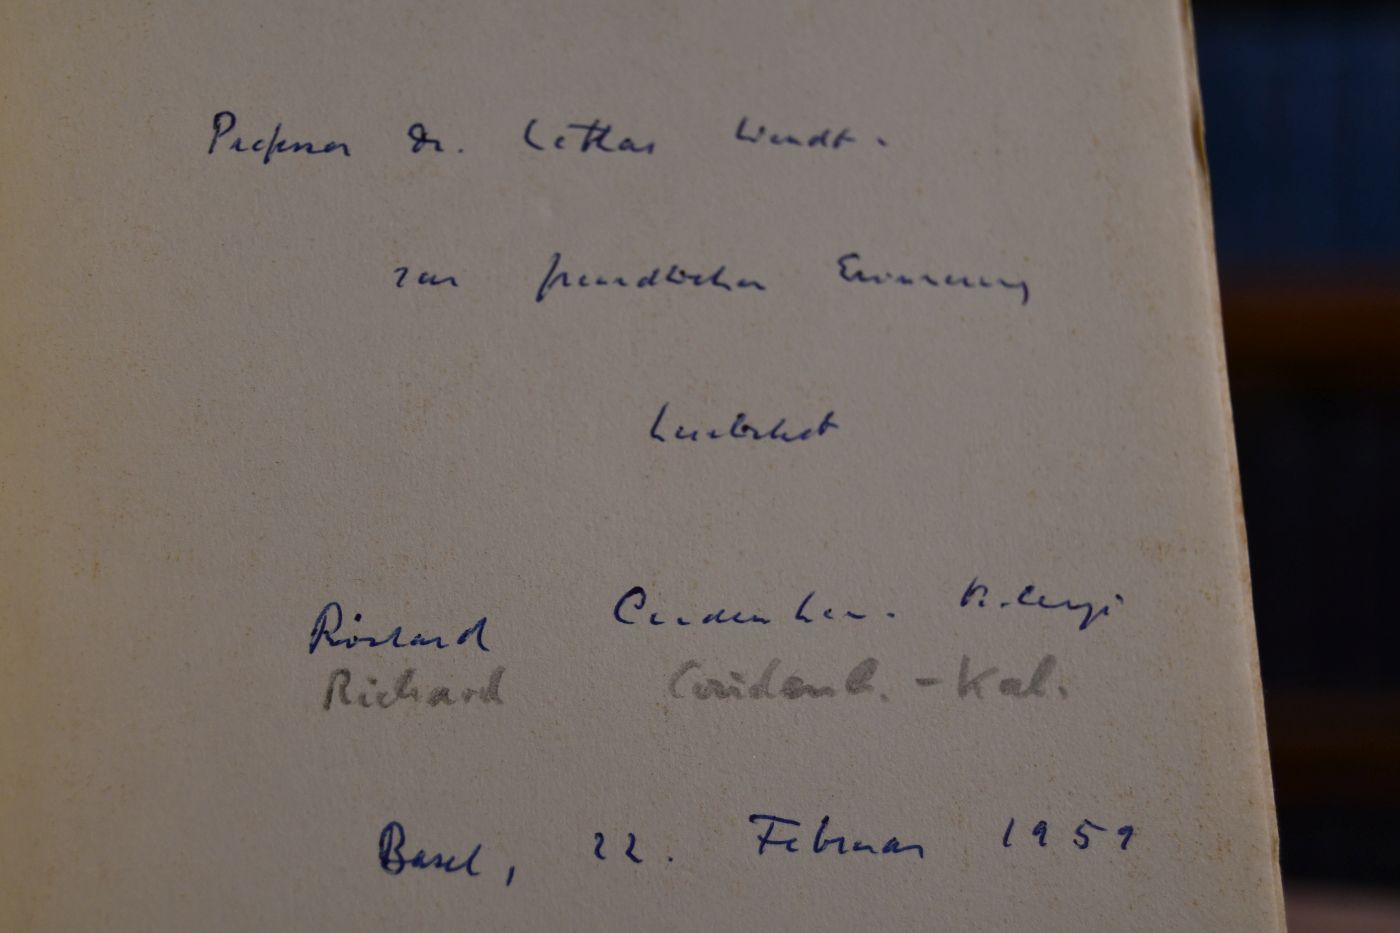 Professor Dr. Lothar Wendt.
zur freundlichen Erinnerung
herzlichst
Richard Coudenhove-Kalergi
Richard Coudenh.-Kal.
Basel, 22. Februar 1959